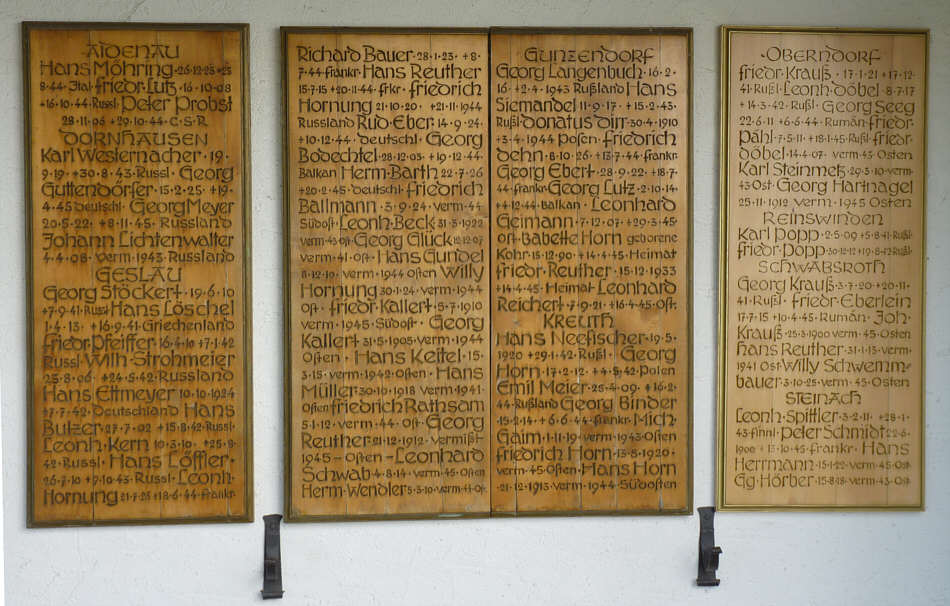 ·AIDENAU·
Hans Möhring·26·12·25·+25·
8·44·Ital·friedr·Lutz·16·10·08
+16·10·44·Russl·Peter Probst
28·11·06·+29·10·44·C·S·R·
DORNHAUSEN
Karl Westernacher·19·
9·19·+30·8·43·Russl·Georg
Guttendörfer·15·2·25·+19·
4·45·deutschl·Georg Meyer
20·5·22·+8·11·45·Russland
Johann Lichtenwalter
4·4·08·verm·1943·Russland
GESLAU
Georg Stöckert·19·6·10
+7·9·41·Russl·Hans Löschel
1·4·13·+16·9·41·Griechenland
friedr·Pfeiffer·16·4·10·+7·1·42
Russl·Wilh·Strohmeier
25·8·06·+24·5·42·Russland
Hans Ettmeyer·10·10·1924
+7·7·42·Deutschland Hans
Bulzer·27·7·02·+15·8·42·Russl·
Leonh·Kern·10·3·10·+25·8·
42·Russl·Hans Löffler·
26·7·10·+7·10·43·Russl·Leonh·
Hornung·21·7·25·+18·6·44·frankr·
Richard Bauer·28·1·23·+8·
7·44·frankr·Hans Reuther
15·7·15·+20·11·44·frkr·friedrich
Hornung·21·10·20·+21·11·1944
Russland Rud·Eber·14·9·24·
+10·12·44·deutschl·Georg
Bodechtel·28·12·03·+19·12·44·
Balkan Herm·Barth·22·7·26
+20·2·45·deutschl·friedrich
Ballmann·3·9·24·verm·44·
Südost·Leonh·Beck·31·3·1922
verm·43·ost·Georg Glück·12·12·07
verm·41·ost·Hans Gundel
8·12·10·verm·1944·Osten Willy
Hornung·30·1·24·verm·1944
Ost·friedr·Kallert·5·7·1910
verm·1945·Südost·Georg
Kallert·31·5·1905·verm·1944
Osten·Hans Keitel·15·
3·15·verm·1942·Osten·Hans
Müller·30·10·1918 verm·1941·
Osten friedrich Rathsam
5·1·12·verm·44·Ost·Georg
Reuther·21·12·1912·Vermißt·
1945·Osten·Leonhard
Schwab·4·8·14·verm·45·Osten
Herm·Wendler·5·3·10·verm·44·Ost·
GUNZENDORF
Georg Langenbuch·16·2·
16·+2·4·1943 Rußland Hans
Siemandel·11·9·17·+15·2·43·
Rußl·donatus dirr·30·4·1910
+3·4·1944 Posen·friedrich
dehn·8·10·26·+13·7·44·frankr
Georg Eberl·28·9·22·+18·7·
44·frankr·Georg Lutz·2·10·14·
+12·44·Balkan·Leonhard
Geimann·7·12·07·+20·3·45·
Ost·Babette Horn geborene
Kohr·15·12·90·+14·4·45·Heimat
friedr·Reuther·15·12·1933
+14·4·45·Heimat·Leonhard
Reichert·7·9·21·+16·4·45·Ost·
KREUTH
Hans Neefischer·19·5·
1920·+29·1·42·Rußl·Georg
Horn·17·2·12·+4·5·42·Polen
Emil Meier·25·4·09·+16·2·
44·Rußland Georg Binder
15·2·14·+6·6·44·frankr·Mich·
Gaim·1·11·19·verm·1943·Osten
friedrich Horn·13·8·1920·
verm·45·Osten·Hans Horn
21·12·1913·verm·1944·Südosten
·OBERNDORF·
friedr·Krauß·17·1·21·+17·12·
41·Rußl·Leonh·döbel·8·7·17
+14·3·42·Rußl·Georg Seeg
22·6·11·+6·6·44·Rumän·friedr·
Pähl·7·5·11·+18·1·45·Rußl·friedr·
döbel·14·4·07·verm·45·Osten
Karl Steinmetz·29·3·10·verm·
43·Ost·Georg Hartnagel
25·11·1912·verm·1945 Osten
REINSWINDEN
Karl Popp·2·5·09·+5·8·41·Rußl·
friedr·Popp·30·12·12·+19·8·42·Rußl·
SCHWABSROTH
Georg Krauß·3·7·20·+20·11·
41·Rußl·friedr·Eberlein
17·7·15·+10·4·45·Rumän·Joh·
Krauß·25·3·1900·verm·45·Osten
Hans Reuther·31·1·15·verm·
1941 Ost·Willy Schwemm-
bauer·3·10·25·verm·45·Osten
STEINACH
Leonh·Spittler·3·2·11·+28·1·
43·finnl·Peter Schmidt·22·6·
1900·+15·10·45·frankr·Hans
Herrmann·15·1·22·verm·45·Ost·
Gg·Hörber·15·8·18·verm·43·Ost·